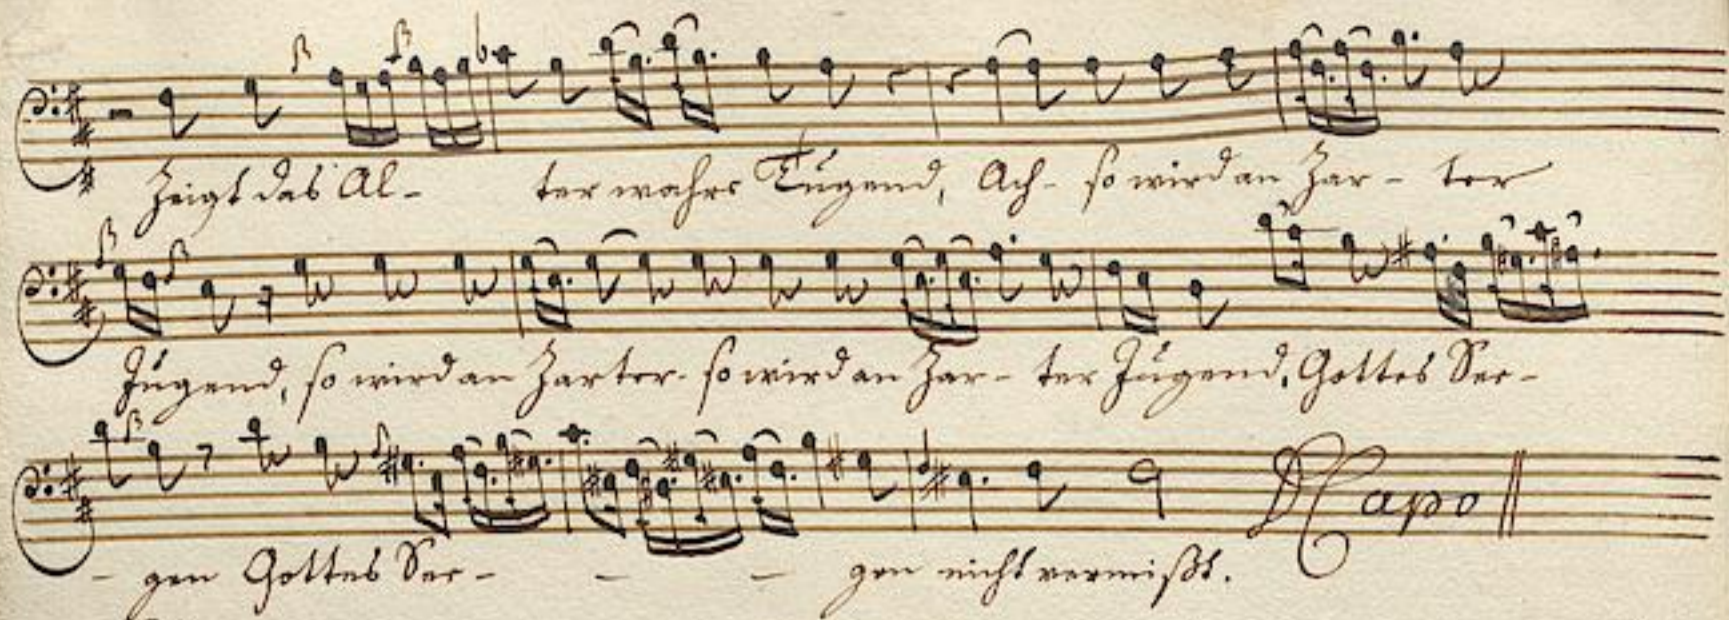 Zeigt das Al- ter wahre Tugend, Ach- so wird an Zar- ter
Jugend, so wird an Zarter- so wird an Zar- ter Jugend, Gottes See-
- gen Gottes See- - - gen nicht vermißt.
D Capo